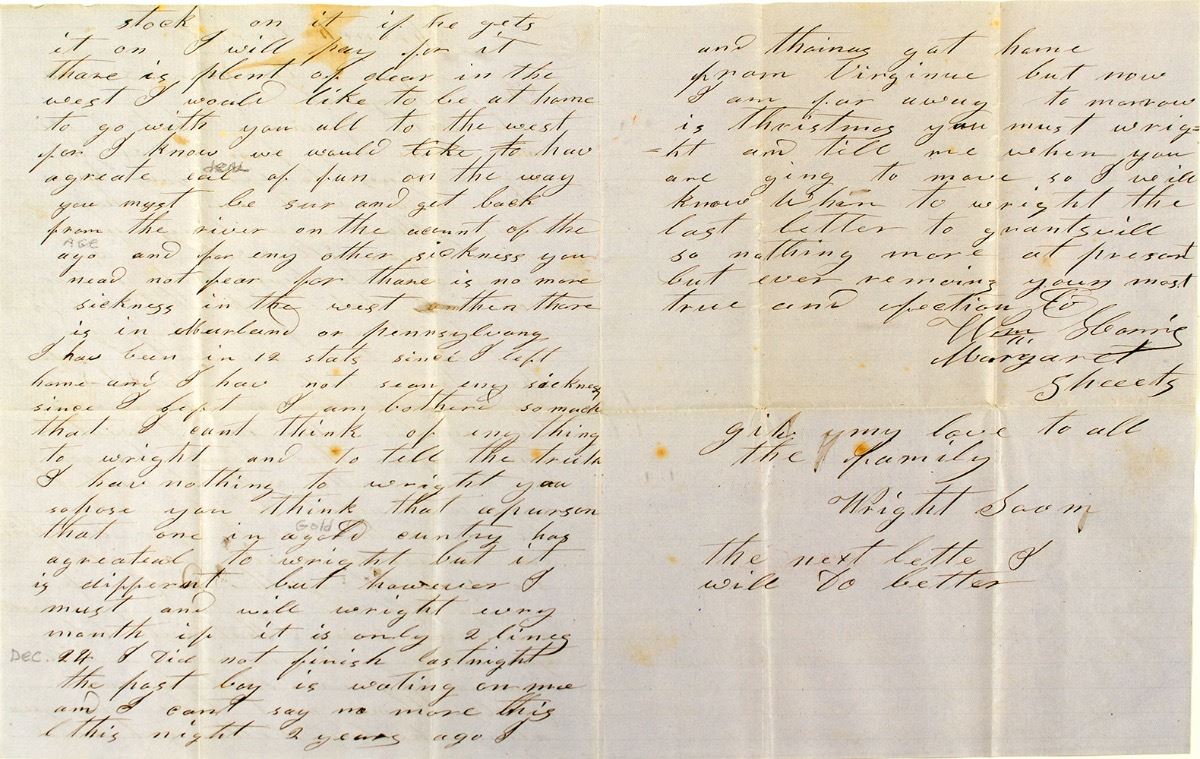 stock on it if he gets
it on I will pay for it
thare is plent of dear in the
west I would like to be at home
to go with you all to the west
for I know we would like to hav
deal
agreate eal of fun on the way
you myst be sur and get back
from the river on the acount of the
AGE
ago and for eny other sickness you
nead not fear for thare is no more
sickness in the west then thare
is in Marland or pennsylvany
I hav been in 12 stats since I left
home and I hav not sean eny sickness
since I left I am bothered so mach
that I cant think of eny thing
to wright and to tell the truth
I hav nothing to wright you
sopose you think that apurson
Gold
that one in agold cuntry has
agreateal to wright but it
is differnt but howevier I
must and will wright evry
month if it is only 2 lines
DEC. 24 I Did not finish lastnight
the post boy is wating on mee
and I cant say no more this
this night 2 years ago I
and thainas got home
from Virginue but now
I am far away to morrow
is Christmas you must wrig
=ht and till me when you
are ging to move so I will
know when to wright the
last letter to grantsvill
so nothing more at presant
but ever remains yours most
true and afection to
Wm Harris
to
Margaret
Sheeets
give my love to all
the family
Wright Soon
the next lette I
will do better